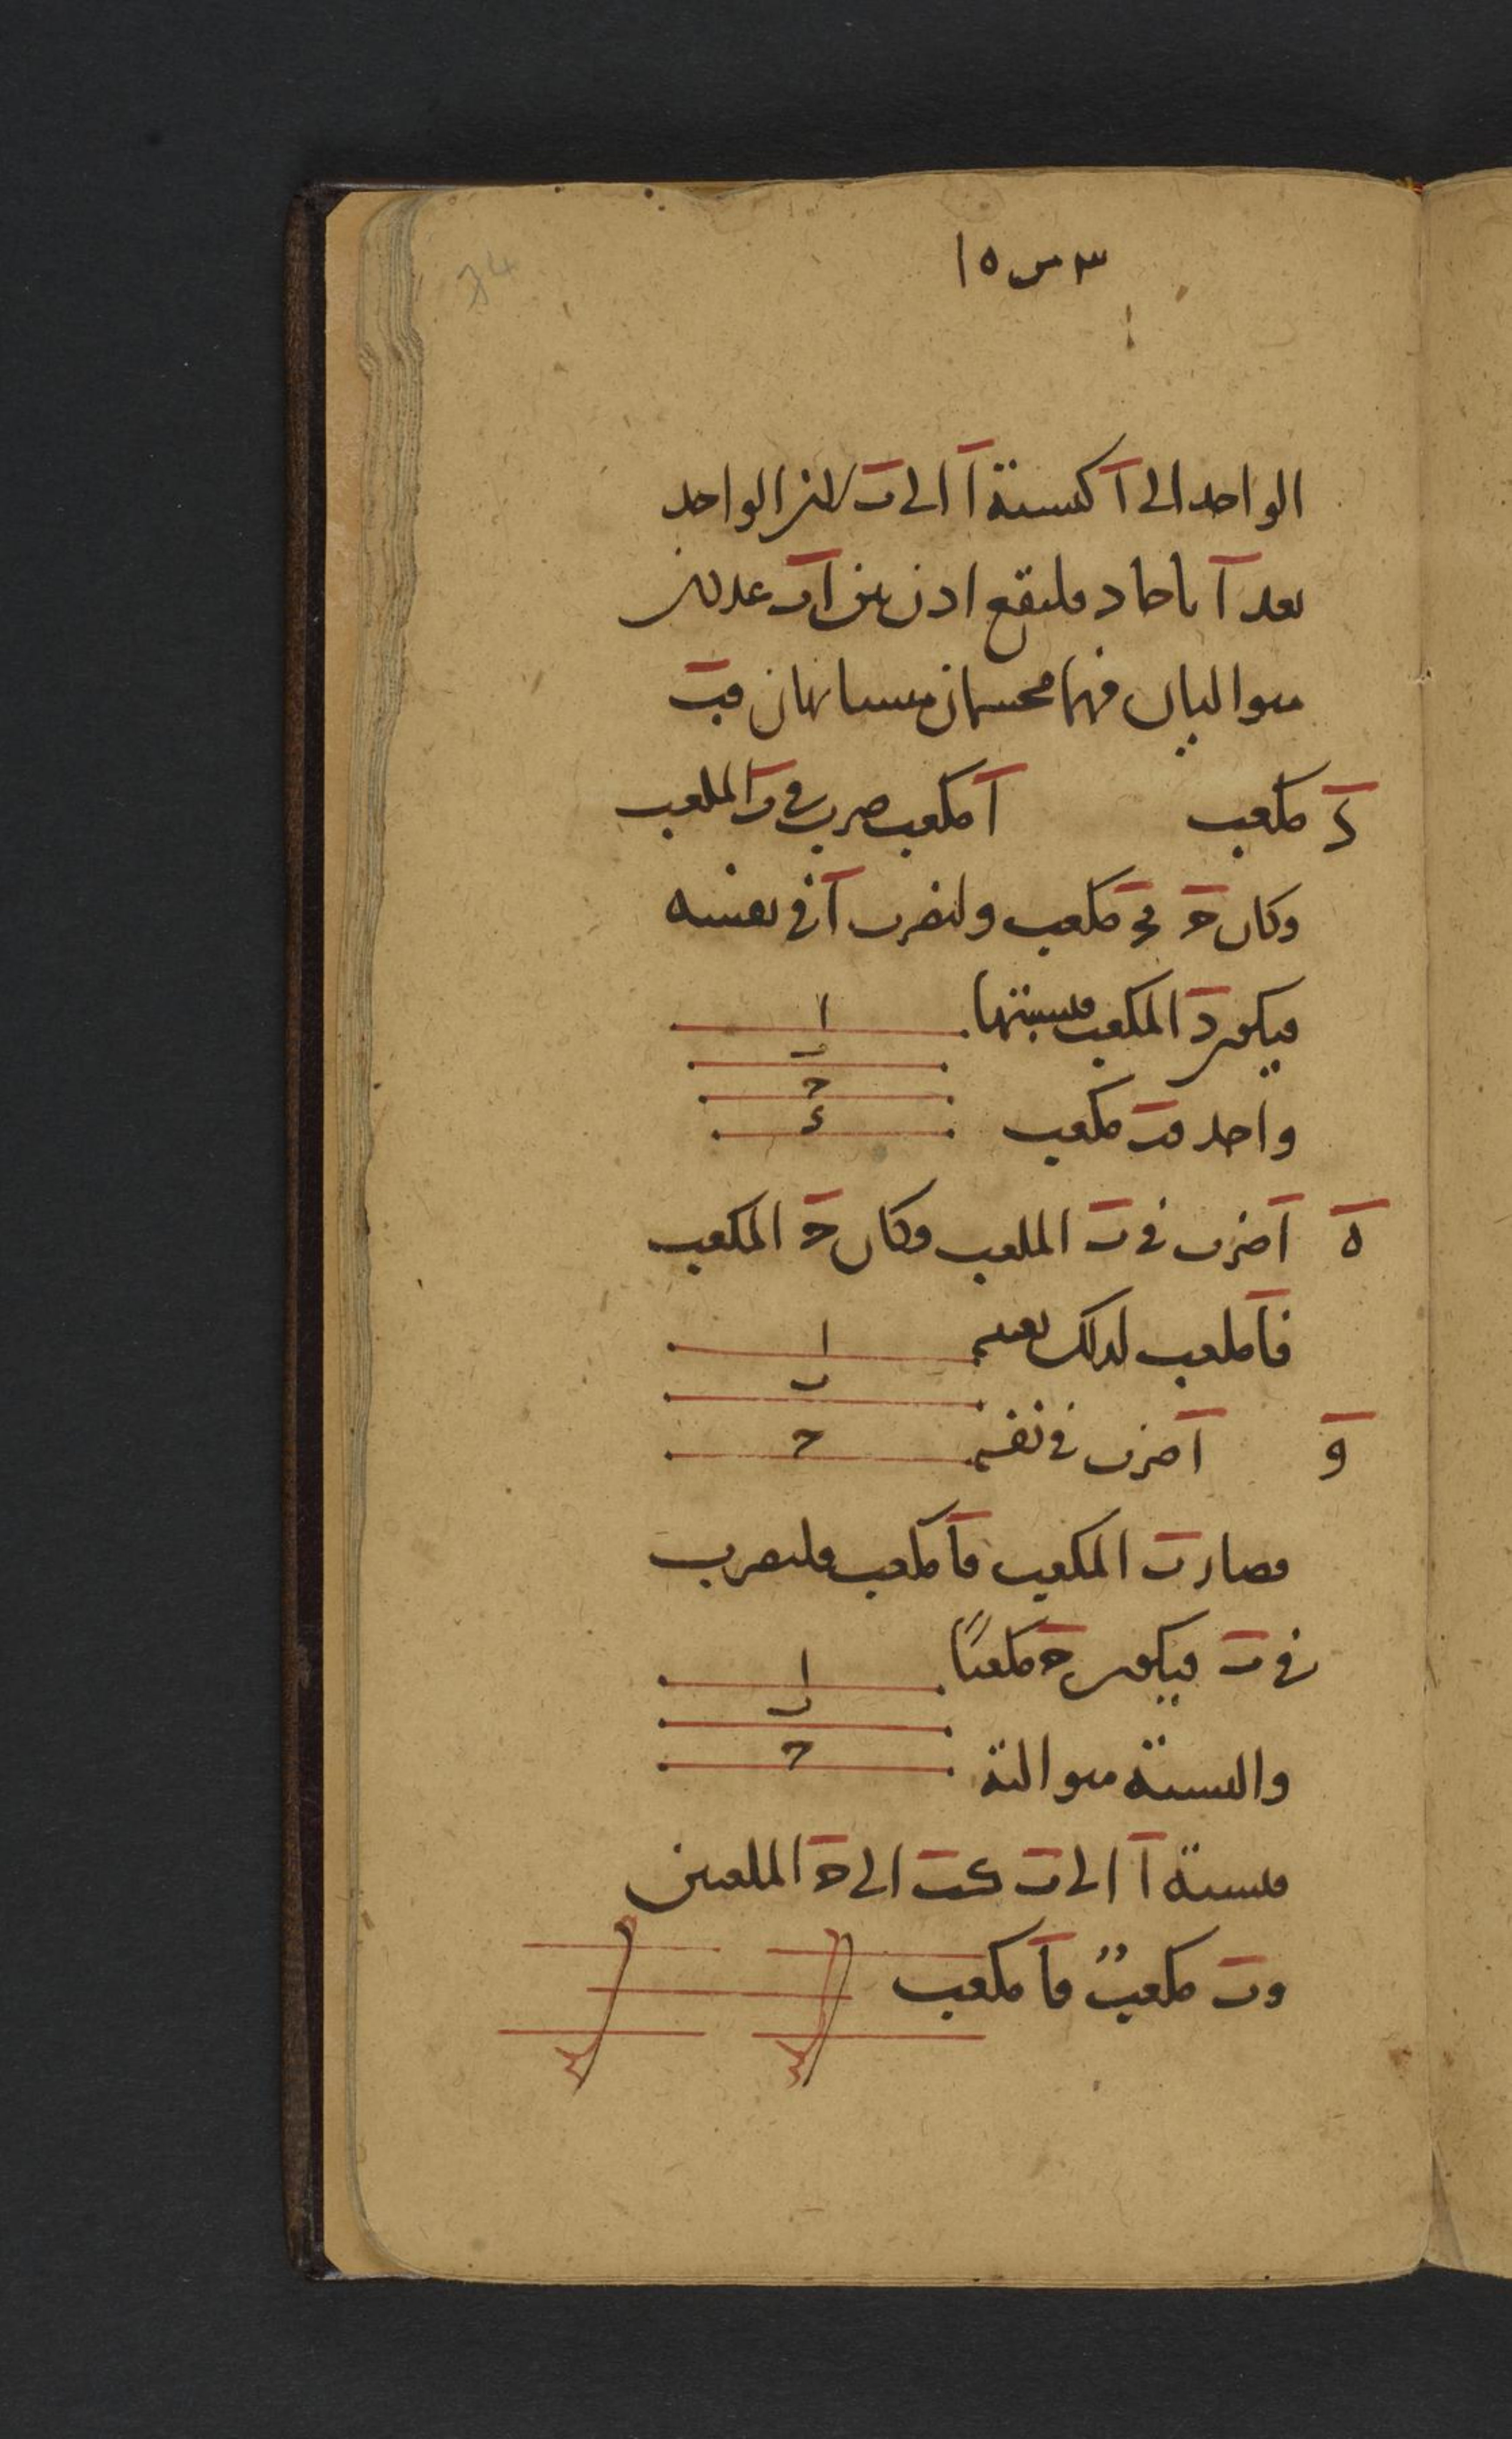 34
٣ س ١٥
الواحد الى آ كنسبة آ الى ب لان الواحد
يعد آ باحاد فليقع اذن بين آب عددان
متواليان فهما مجسمان متشابهان فب
مكعب آ مكعب ضرب فى ب المكعب د
وكان ج فج مكعب ولنضرب آ فى نفسه
فيكون د المكعب فنسبتها
ا
ب
ج
د
واحد فب مكعب
ه آ ضرب فى ب المكعب وكان ج المكعب
فآ مكعب لذلك بعينه
ا
ب
ج
و آ ضرب فى نفسه
فصار ب المكعب فآ مكعب فليضرب
فى ب فيكون ج مكعبًا
ا
ب
ج
والنسبة متوالية
فنسبة آ الى ب كب الى ج المكعبين
وب مكعبٌ فآ مكعب